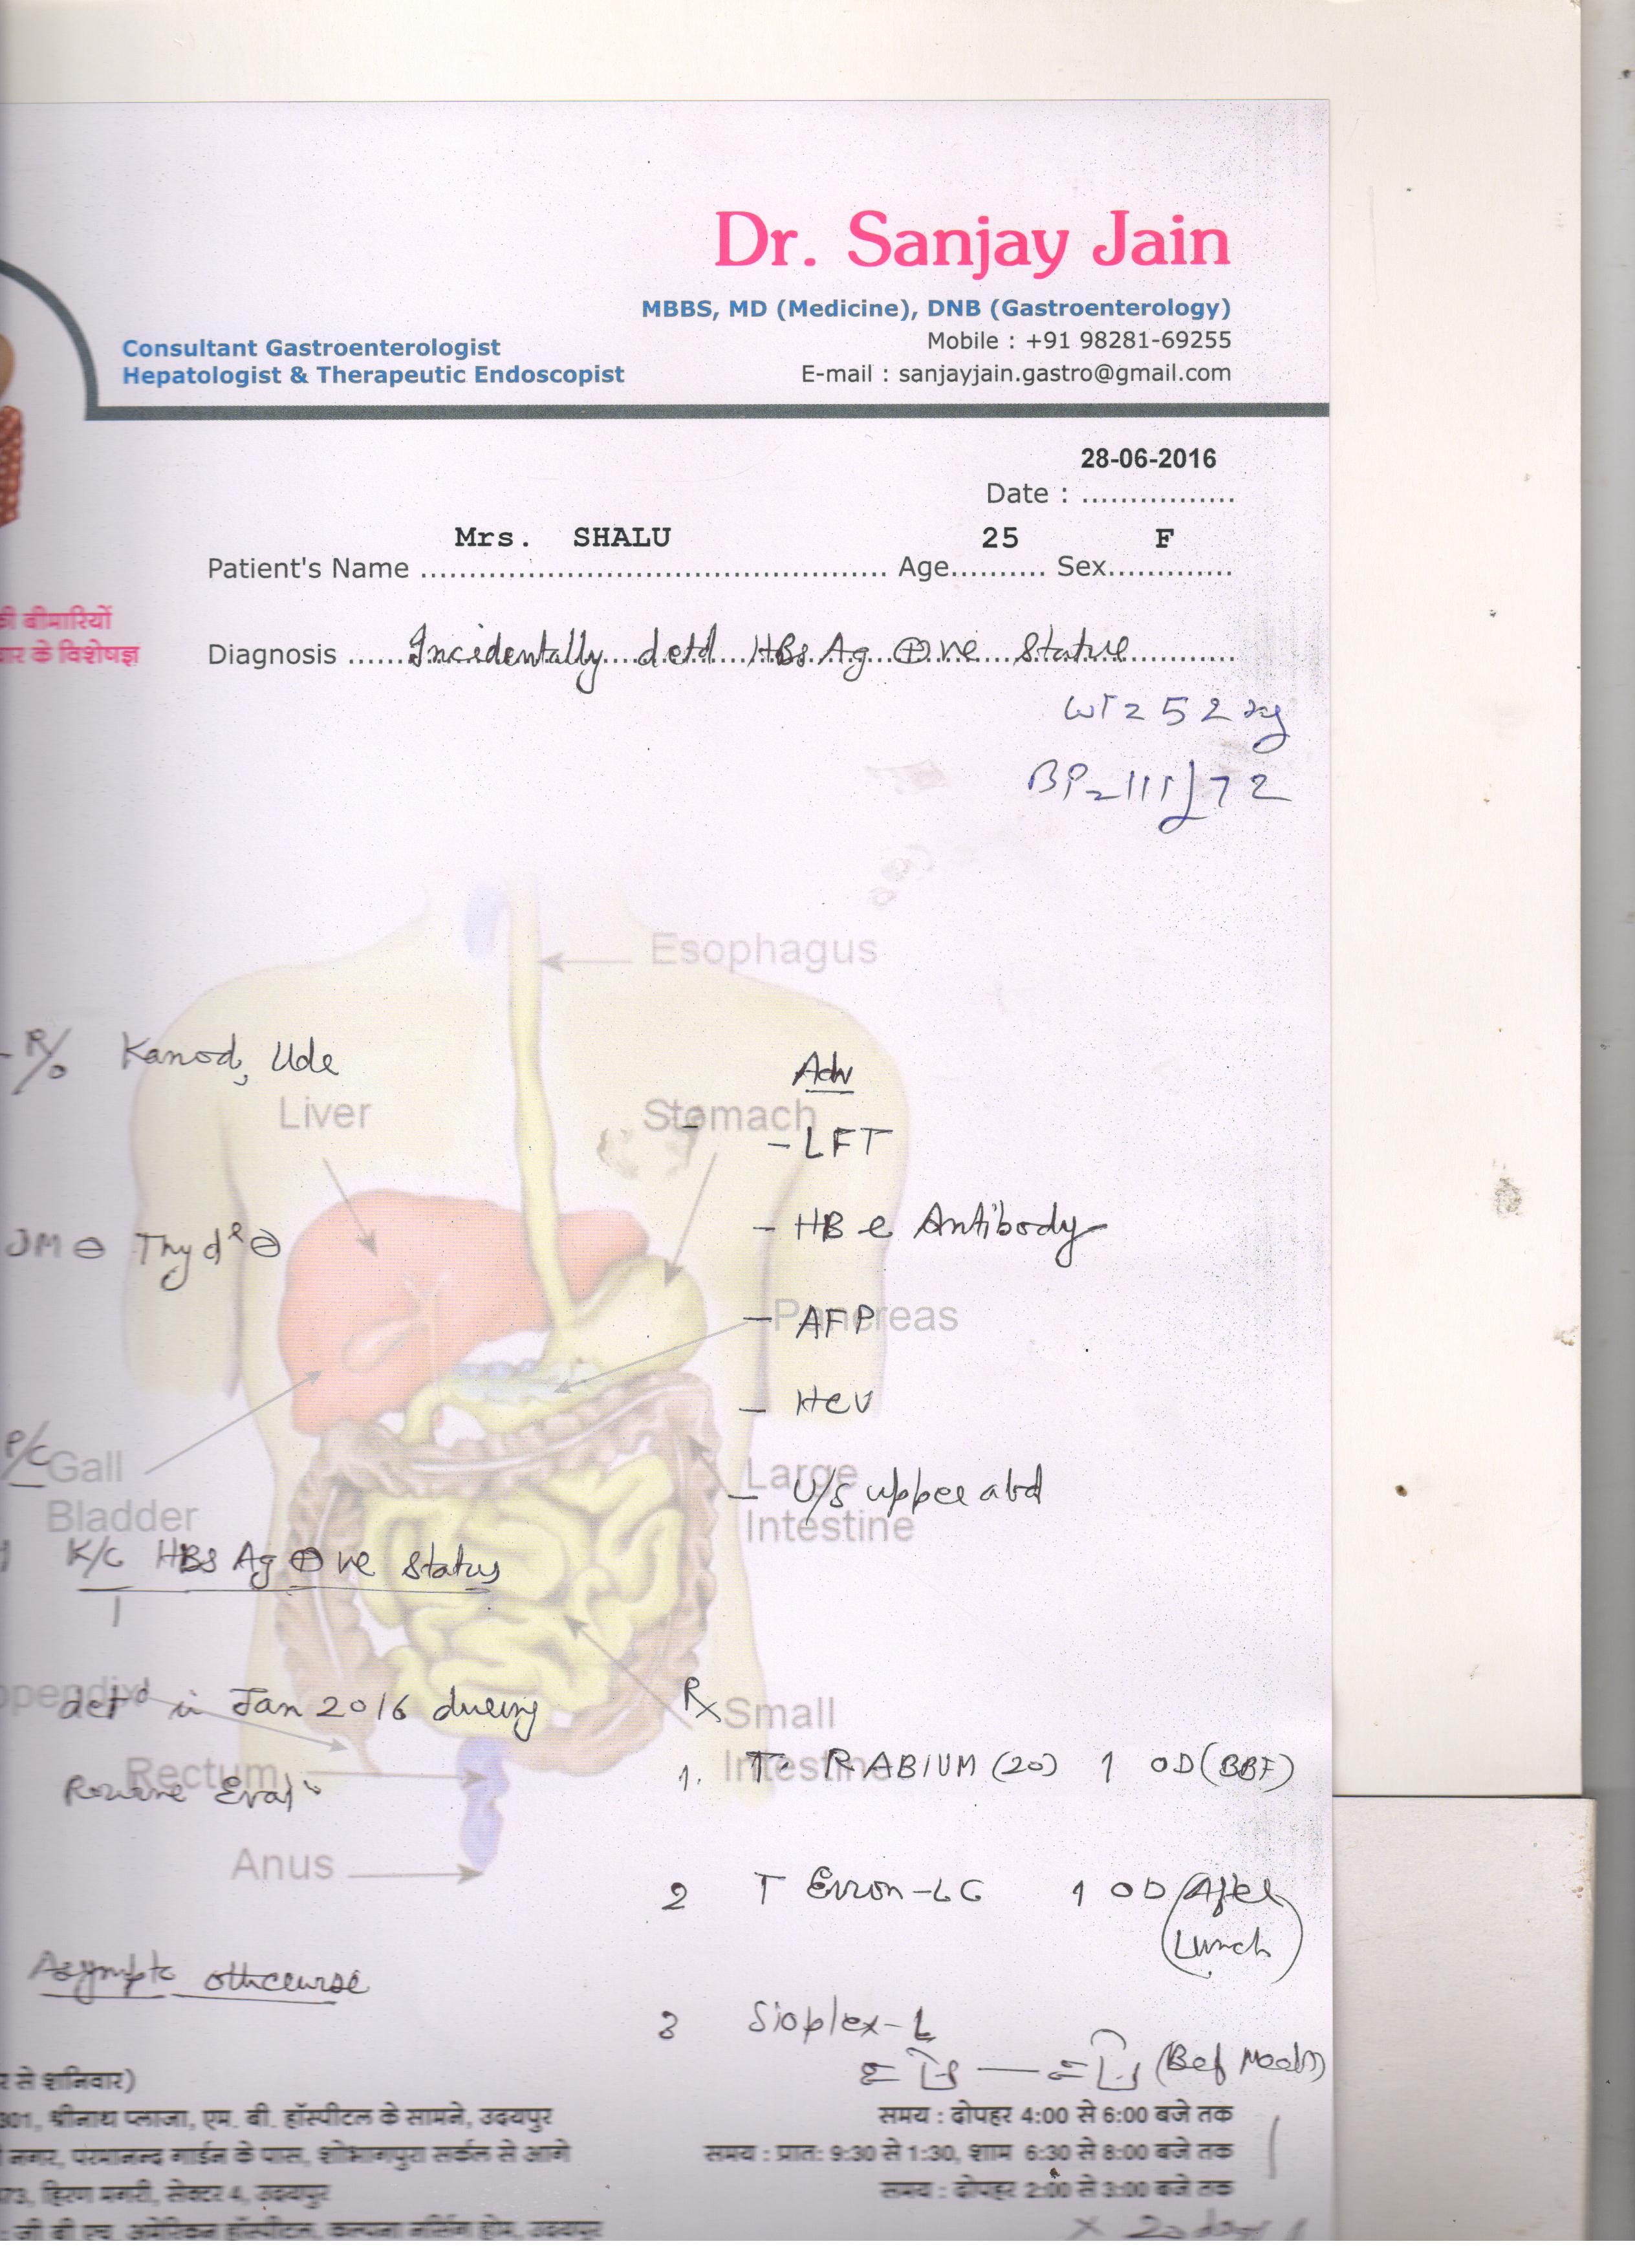 Dr. Sanjay Jain
MBBS, MD (Medicine), DNB (Gastroenterology)
Mobile : +91 98281-69255
E-mail : sanjayjain.gastro@gmail.com
Consultant Gastroenterologist
Hepatologist & Therapeutic Endoscopist
28-06-2016
Date : ................
Mrs. SHALU 25 F
Patient's Name ................................................ Age.......... Sex.............
की बीमारियों
के विशेषज्ञ
Diagnosis ...... Incidentally detd HBsAg ⊕ve Status
Wt = 52 kg
BP = 111/72
Esophagus
R/o Kanod, Ude
Adv
Liver
Stomach
- LFT
- HB e Antibody
DM ⊖ Thyd ⊖
Pancreas
- AFP
- HCV
P/C
Gall
Bladder
Large
Intestine
- U/S upper abd
K/C HBsAg ⊕ve Status
detd in Jan 2016 during
Rectum
Eval
Anus
Rx
Small
Intestine
1. T. RABIUM (20) 1 OD (BBF)
2 T 1 OD (After
Lunch)
Asympto otherwise
3 Sioplex-L
(Bef Meals)
से शनिवार)
301, श्रीनाथ प्लाजा, एम. बी. हॉस्पीटल के सामने, उदयपुर
समय : दोपहर 4:00 से 6:00 बजे तक
नगर, परमानन्द गार्डन के पास, शोभागपुरा सर्कल से आगे
समय : प्रात: 9:30 से 1:30, शाम 6:30 से 8:00 बजे तक
73, हिरण मगरी, सेक्टर 4, उदयपुर
समय : दोपहर 2:00 से 3:00 बजे तक
जी बी एच अमेरिकन हॉस्पीटल, कल्पना नर्सिंग होम, उदयपुर
x 20 days